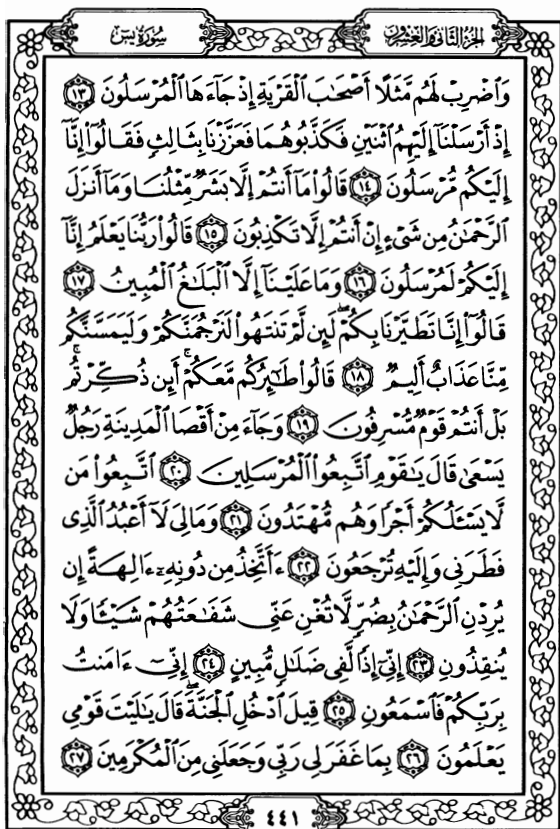 سُورَةُ يسٓ
الجُزْءُ الثَّانِي وَالعِشْرُونَ
وَاضْرِبْ لَهُم مَّثَلًا أَصْحَٰبَ الْقَرْيَةِ إِذْ جَآءَهَا الْمُرْسَلُونَ ١٣
إِذْ أَرْسَلْنَآ إِلَيْهِمُ اثْنَيْنِ فَكَذَّبُوهُمَا فَعَزَّزْنَا بِثَالِثٍ فَقَالُوٓا۟ إِنَّآ
إِلَيْكُم مُّرْسَلُونَ ١٤ قَالُوا۟ مَآ أَنتُمْ إِلَّا بَشَرٌ مِّثْلُنَا وَمَآ أَنزَلَ
الرَّحْمَٰنُ مِن شَىْءٍ إِنْ أَنتُمْ إِلَّا تَكْذِبُونَ ١٥ قَالُوا۟ رَبُّنَا يَعْلَمُ إِنَّآ
إِلَيْكُمْ لَمُرْسَلُونَ ١٦ وَمَا عَلَيْنَآ إِلَّا الْبَلَٰغُ الْمُبِينُ ١٧
قَالُوٓا۟ إِنَّا تَطَيَّرْنَا بِكُمْ ۖ لَئِن لَّمْ تَنتَهُوا۟ لَنَرْجُمَنَّكُمْ وَلَيَمَسَّنَّكُم
مِّنَّا عَذَابٌ أَلِيمٌ ١٨ قَالُوا۟ طَٰٓئِرُكُم مَّعَكُمْ ۚ أَئِن ذُكِّرْتُم ۚ
بَلْ أَنتُمْ قَوْمٌ مُّسْرِفُونَ ١٩ وَجَآءَ مِنْ أَقْصَا الْمَدِينَةِ رَجُلٌ
يَسْعَىٰ قَالَ يَٰقَوْمِ اتَّبِعُوا۟ الْمُرْسَلِينَ ٢٠ اتَّبِعُوا۟ مَن
لَّا يَسْـَٔلُكُمْ أَجْرًا وَهُم مُّهْتَدُونَ ٢١ وَمَالِىَ لَآ أَعْبُدُ الَّذِى
فَطَرَنِى وَإِلَيْهِ تُرْجَعُونَ ٢٢ ءَأَتَّخِذُ مِن دُونِهِۦٓ ءَالِهَةً إِن
يُرِدْنِ الرَّحْمَٰنُ بِضُرٍّ لَّا تُغْنِ عَنِّى شَفَٰعَتُهُمْ شَيْـًٔا وَلَا
يُنقِذُونِ ٢٣ إِنِّىٓ إِذًا لَّفِى ضَلَٰلٍ مُّبِينٍ ٢٤ إِنِّىٓ ءَامَنتُ
بِرَبِّكُمْ فَاسْمَعُونِ ٢٥ قِيلَ ادْخُلِ الْجَنَّةَ ۖ قَالَ يَٰلَيْتَ قَوْمِى
يَعْلَمُونَ ٢٦ بِمَا غَفَرَ لِى رَبِّى وَجَعَلَنِى مِنَ الْمُكْرَمِينَ ٢٧
٤٤١